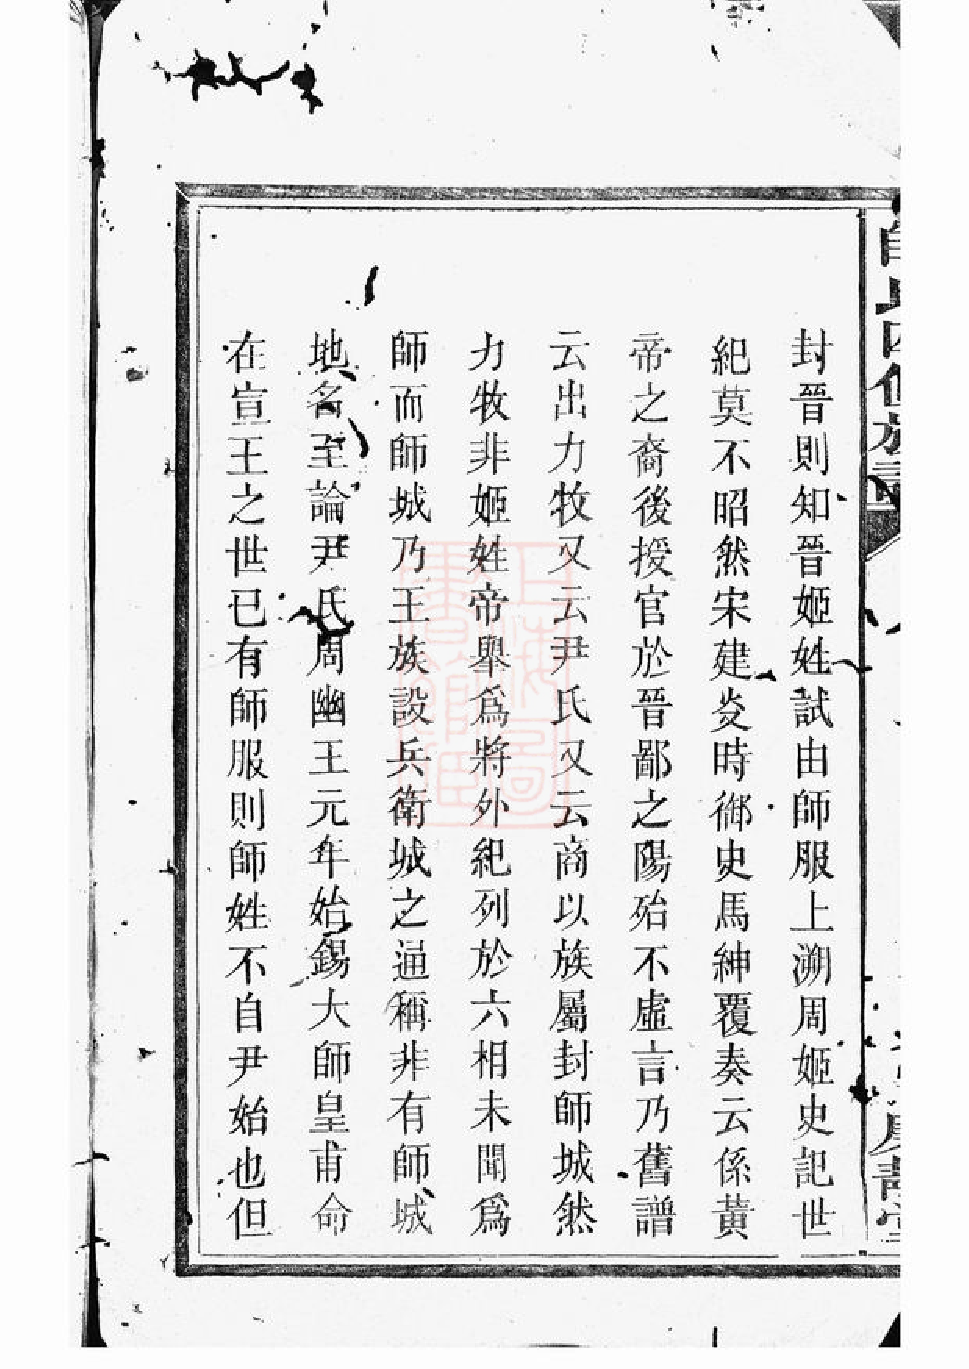 師氏四修族譜
封晉則知晉姬姓試由師服上溯周姬史記世
紀莫不昭然宋建炎時御史馬紳覆奏云係黃
帝之裔後授官於晉鄙之陽殆不虛言乃舊譜
云出力牧又云尹氏又云商以族屬封師城然
力牧非姬姓帝舉為將外紀列於六相未聞為
師而師城乃王族設兵衛城之通稱非有師城
地名至論尹氏周幽王元年始錫大師皇甫命
在宣王之世已有師服則師姓不自尹始也但
上海圖書館藏